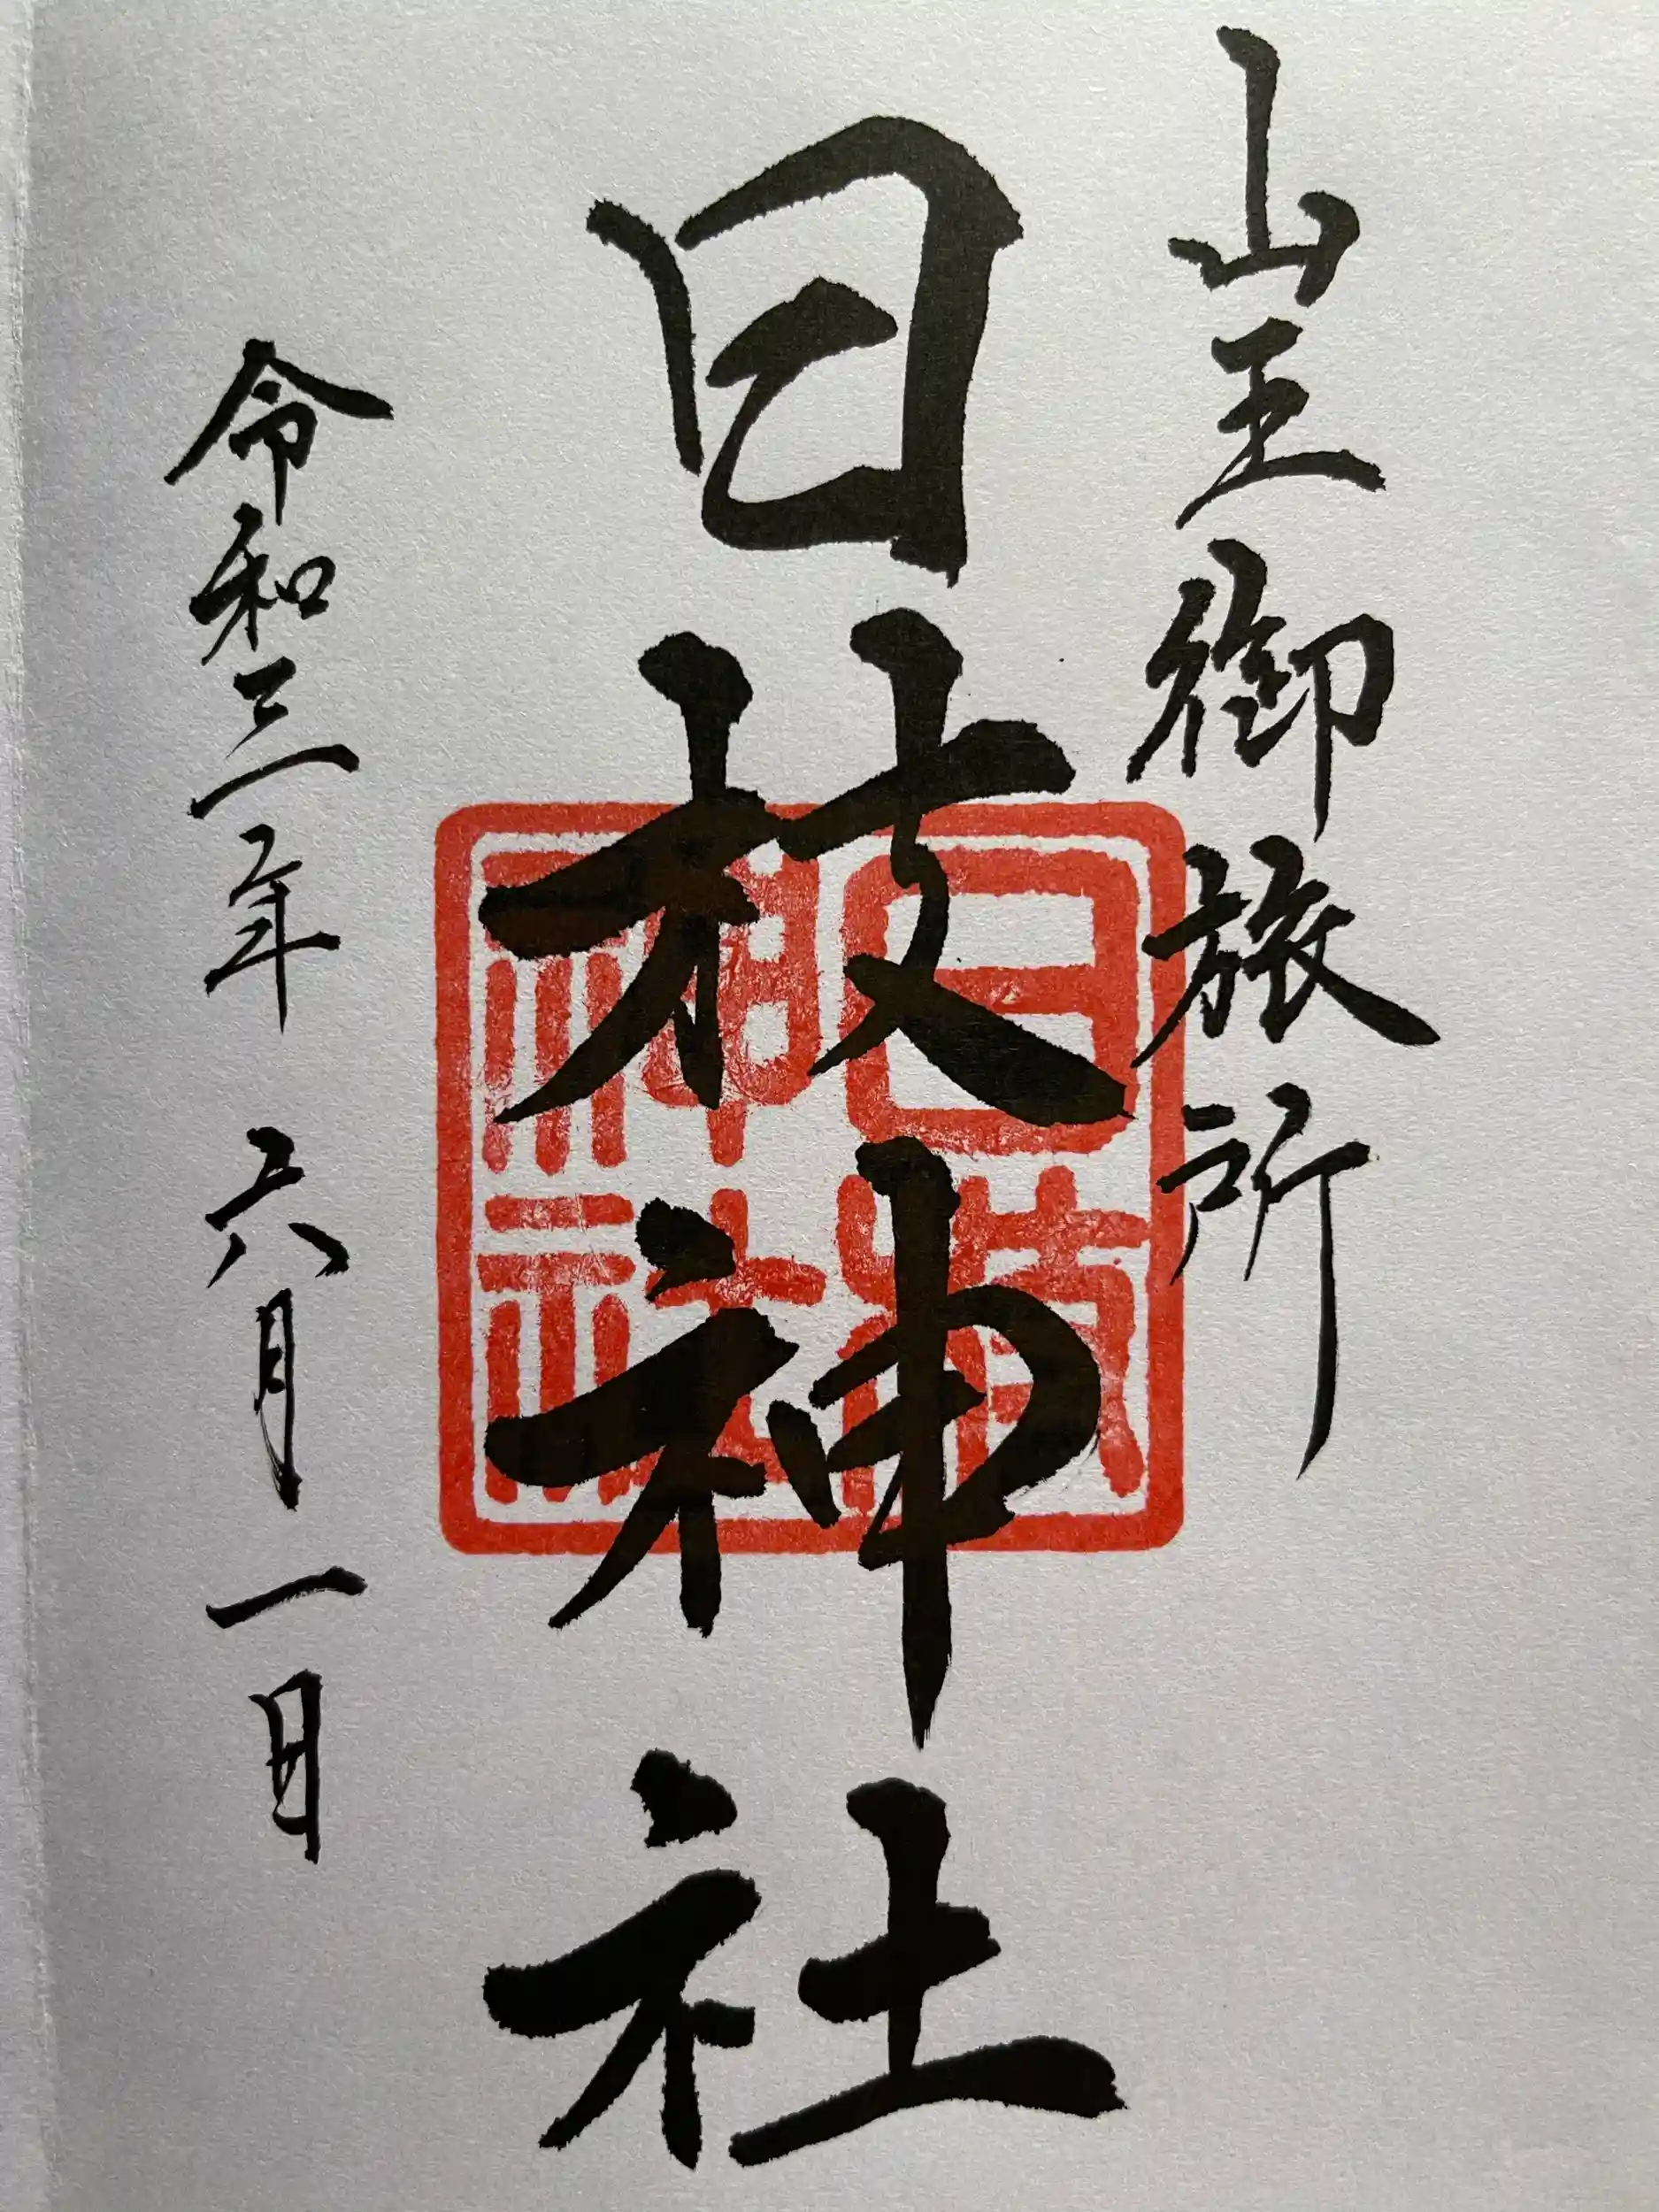 山王御旅所
日枝神社
令和三年 六月 一日
日枝神社